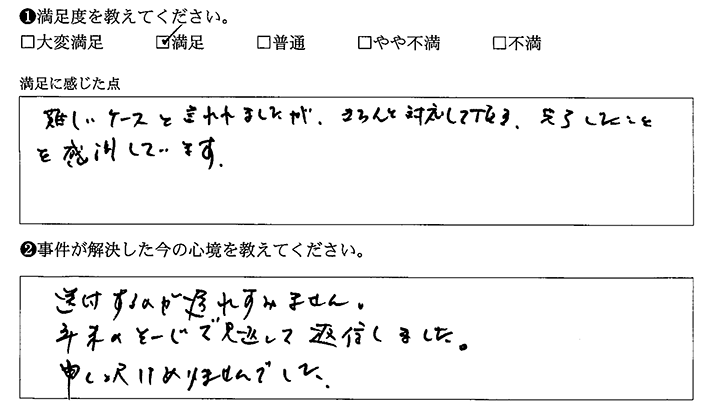 ❶満足度を教えてください。
□大変満足 ☑満足 □普通 □やや不満 □不満
満足に感じた点
難しいケースと言われましたが、きちんと対応して頂き、完了したこと
を感謝しています。
❷事件が解決した今の心境を教えてください。
送付するのが遅れすみません。
年末のそーじで見返して返信しました。
申し訳けありませんでした。